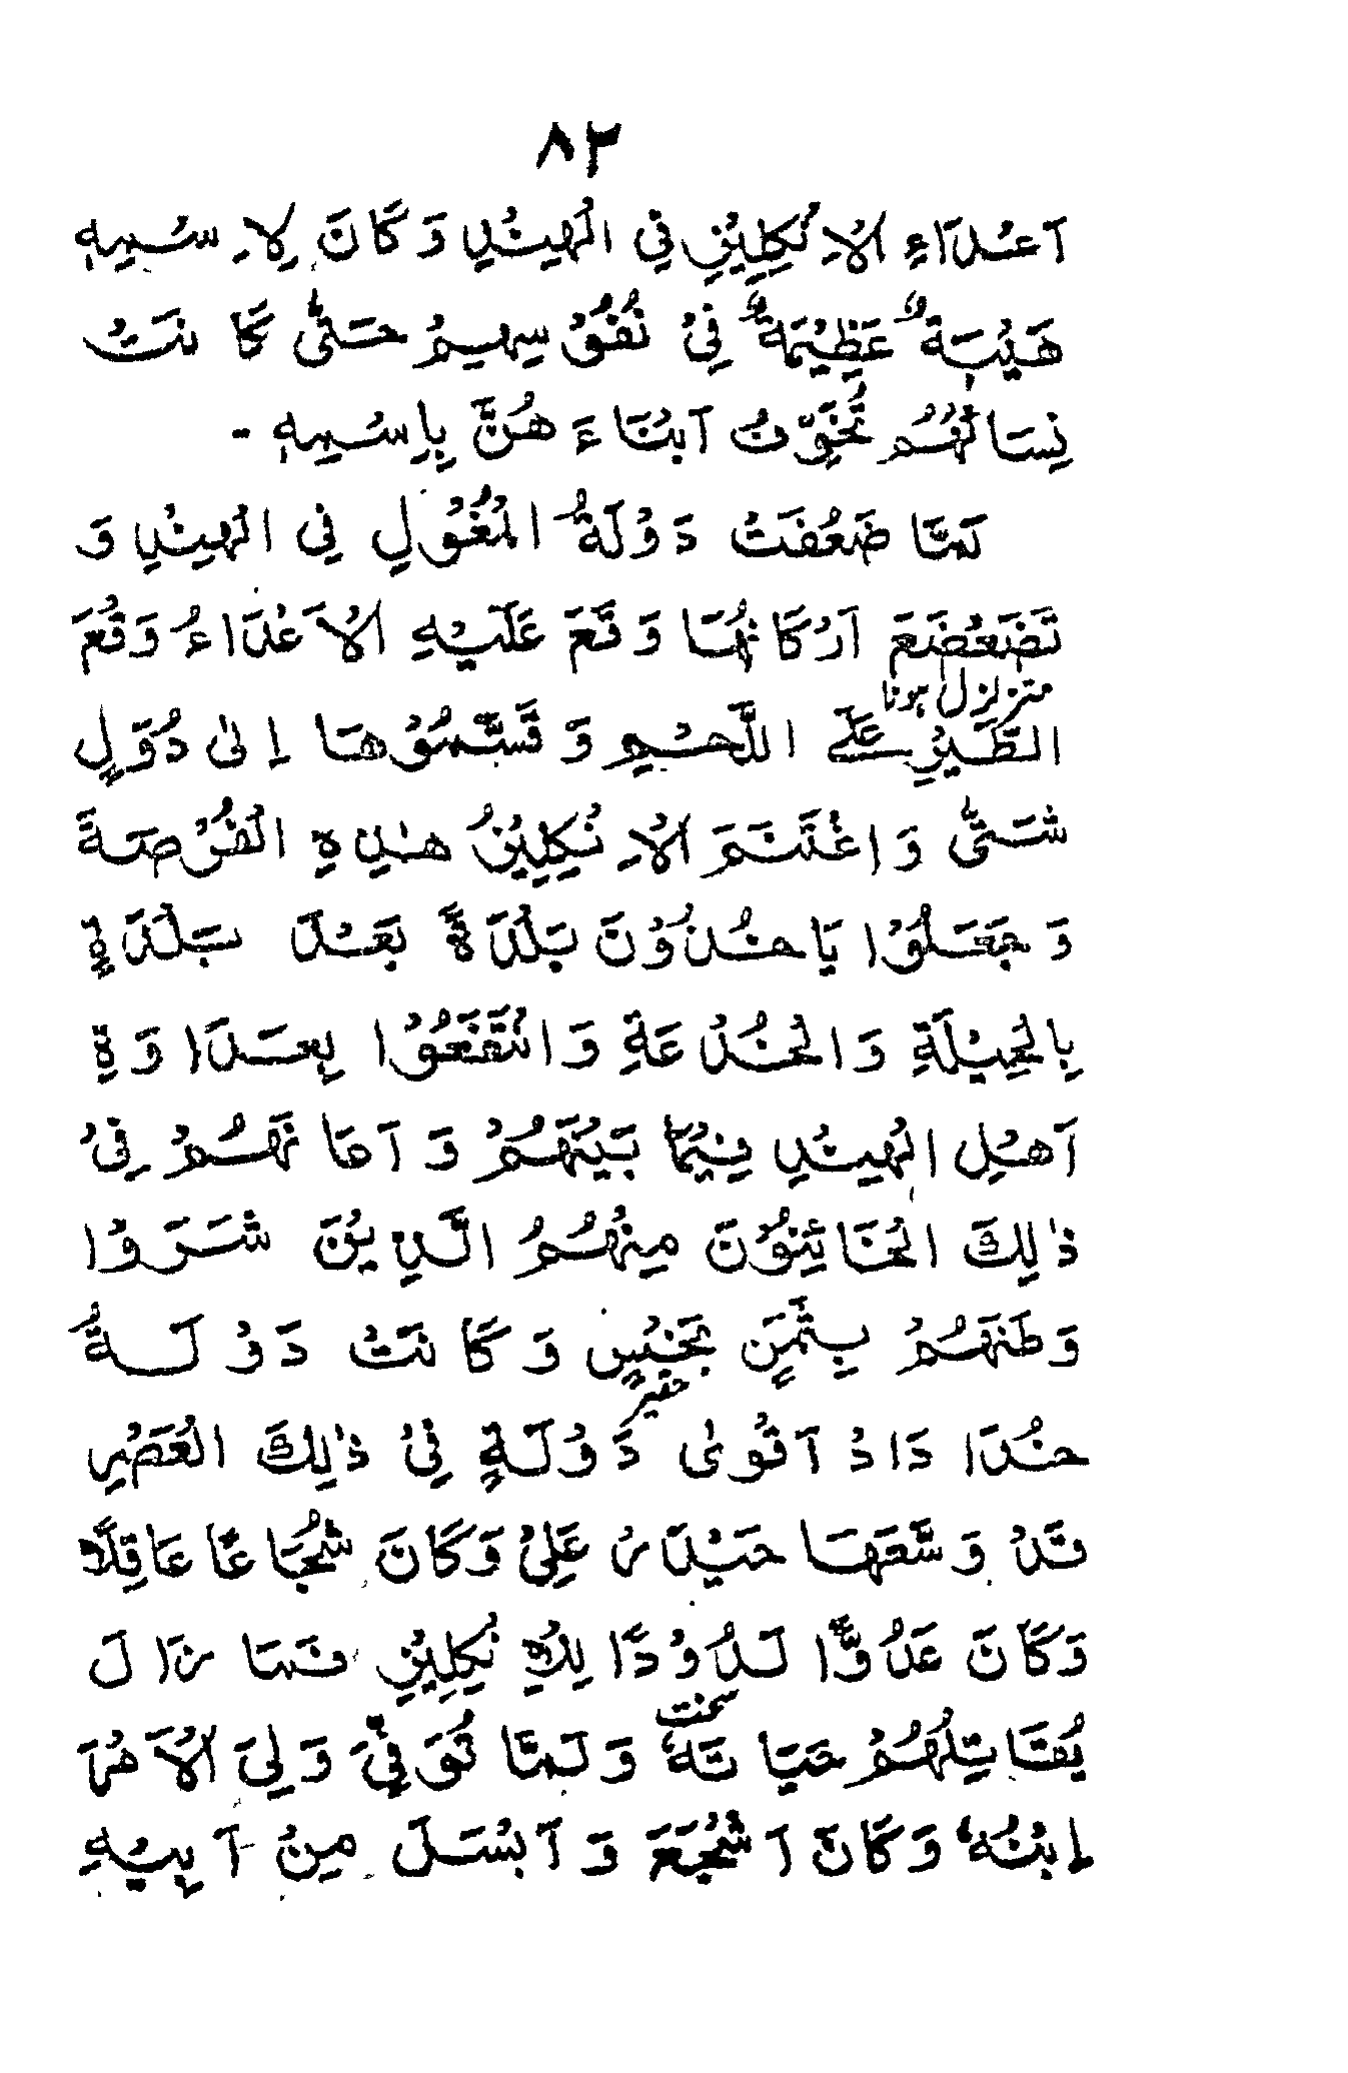 ٨٢
اَعْدَاءِ الْاِنْكِلِيْزِ فِي الْهِنْدِ وَكَانَ لِاِسْمِهٖ
هَيْبَةٌ عَظِيْمَةٌ فِيْ نُفُوْسِهِمْ حَتّٰى كَانَتْ
نِسَائُهُمْ تُخَوِّفْنَ اَبْنَاءَ هُنَّ بِاِسْمِهٖ -
لَمَّا ضَعُفَتْ دَوْلَةُ الْمُغُوْلِ فِي الْهِنْدِ وَ
تَضَعْضَعَ اَرْكَانُهَا وَقَعَ عَلَيْهِ الْاَعْدَاءُ وَقْعَ
متزلزل ہونا
الطَّيْرِ عَلَى اللَّحْمِ وَقَسَّمُوْهَا اِلٰى دُوَلٍ
شَتّٰى وَاغْتَنَمَ الْاِنْكِلِيْزُ هٰذِهِ الْفُرْصَةَ
وَجَعَلُوْا يَاخُذُوْنَ بَلْدَةً بَعْدَ بَلْدَةٍ
بِالْحِيْلَةِ وَالْخُدْعَةِ وَانْتَفَعُوْا بِعَدَاوَةِ
اَهْلِ الْهِنْدِ فِيْمَا بَيْنَهُمْ وَاَعَانَهُمْ فِيْ
ذٰلِكَ الْخَائِنُوْنَ مِنْهُمُ الَّذِيْنَ شَرَوْا
وَطَنَهُمْ بِثَمَنٍ بَخْسٍ وَكَانَتْ دَوْلَةُ
حقیر
خُدَادَادْ اَقْوٰى دَوْلَةٍ فِيْ ذٰلِكَ الْعَصْرِ
قَدْ وَسَّعَهَا حَيْدَرْ عَلِيْ وَكَانَ شُجَاعًا عَاقِلًا
وَكَانَ عَدُوًّا لَدُوْدًا لِلْاِنْكِلِيْزِ فَمَا زَالَ
سخت
يُقَاتِلُهُمْ حَيَاتَهٗ وَلَمَّا تُوُفِّيَ وَلِيَ الْاَمْرَ
اِبْنُهٗ وَكَانَ اَشْجَعَ وَاَبْسَلَ مِنْ اَبِيْهِ